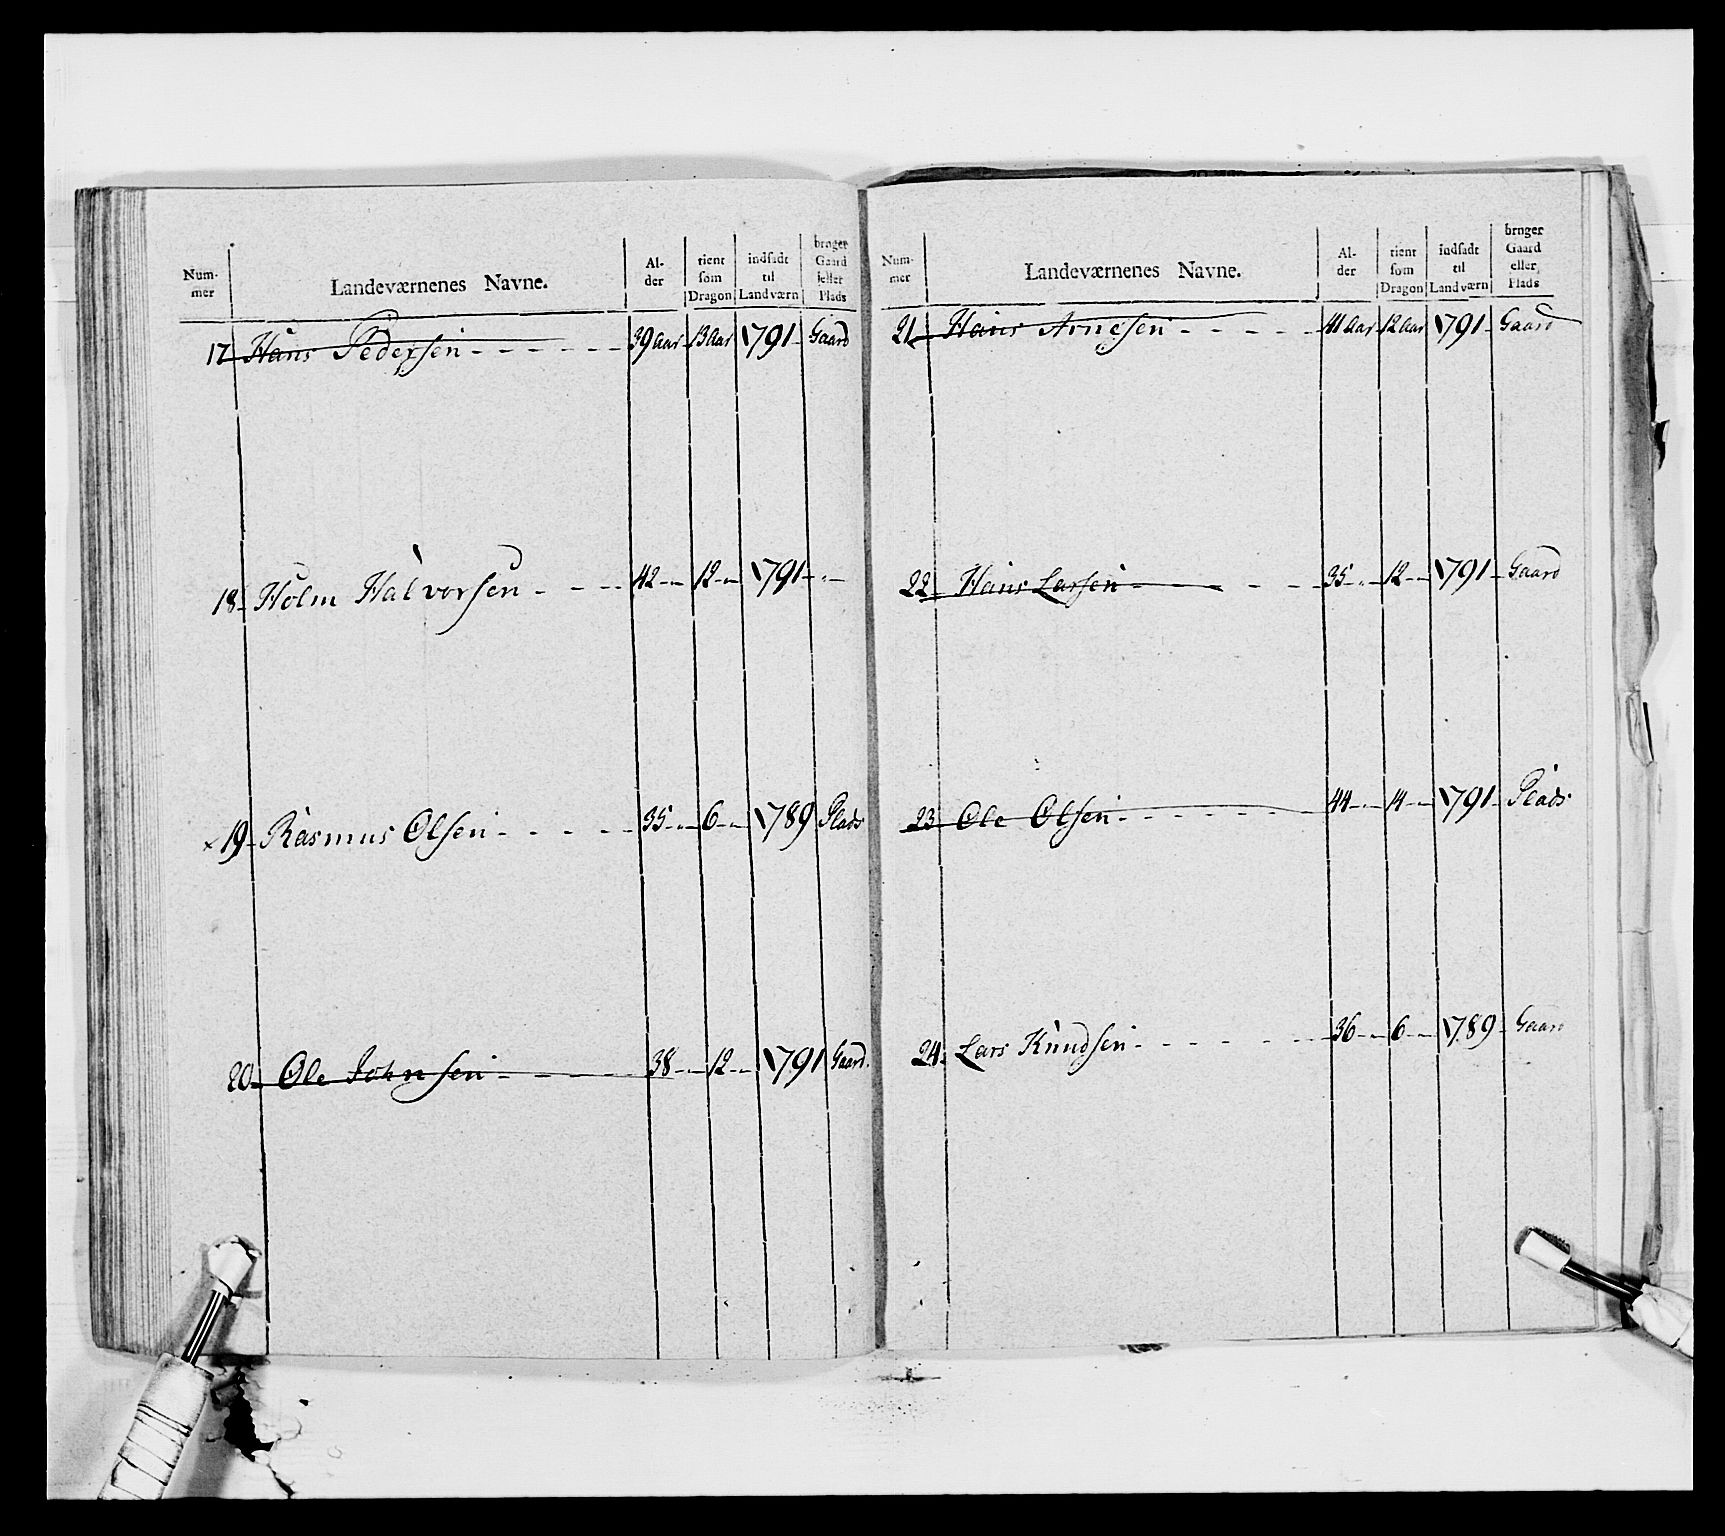 Num-
mer
Landeværnenes Navne.
Al-
der
tient
som
Dragon
indsadt
til
Landværn
bruger
Gaard
eller
Plads
17 Hans Pedersen - - - - - - 39 aar 13 aar 1791 - Gaard
18 - Holm Halvorsen - - - - 42 - " 12 - " 1791 - " -
× 19 - Rasmus Olsen - - - - - 35 - " 6 - " 1789 Plads
20 - Ole Johnsen - - - - 38 - " 12 - " 1791 Gaard.
Num-
mer
Landeværnenes Navne.
Al-
der
tient
som
Dragon
indsadt
til
Landværn
bruger
Gaard
eller
Plads
21 - Hans Arnesen - - - - - 41 aar 12 aar 1791 - Gaard
22 - Hans Larsen - - - - - 35 - " 12 - " 1791 - Gaard
23 Ole Olsen - - - - - - - 44 - " 14 - " 1791 - Plads
24 - Lars Knudsen - - - - - - - 36 - " 6 - " 1789 - Gaard